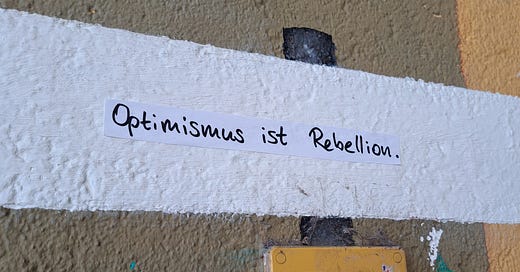 Optimismus ist Rebellion.